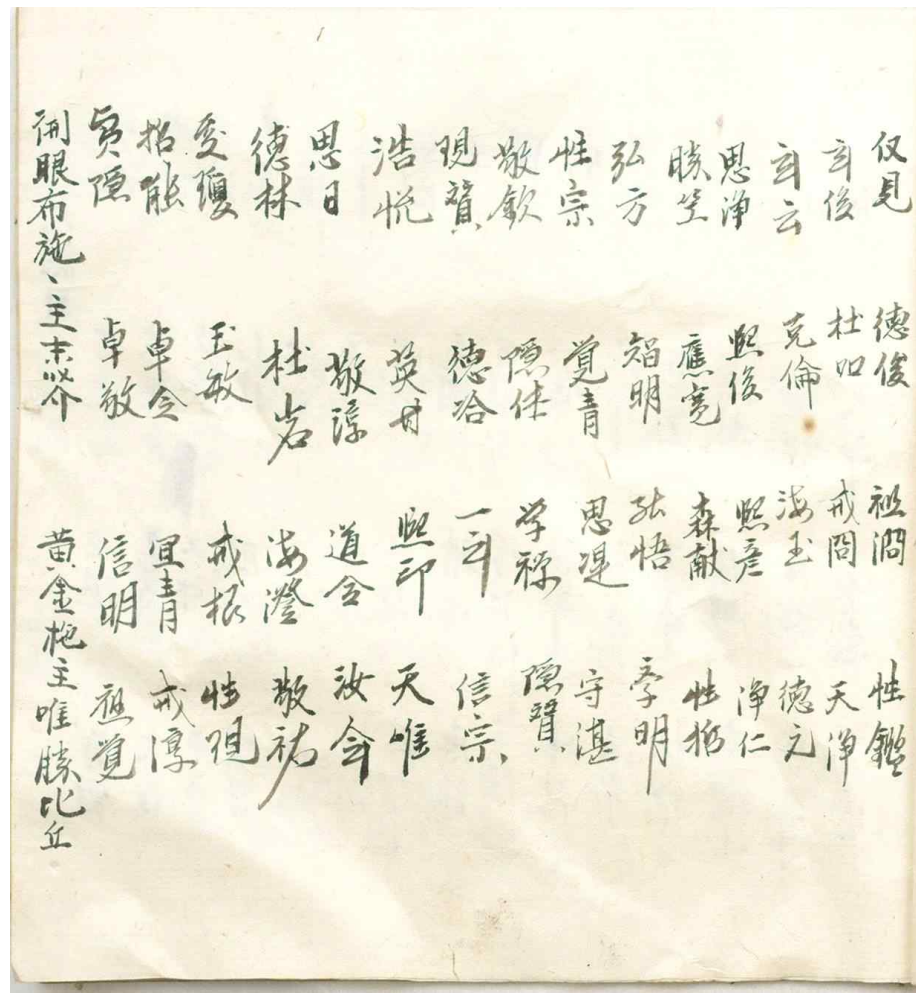 仅見 德俊 祖澗 性鑑
玄俊 杜如 戒問 天淨
玄云 克倫 海玉 德元
思淨 熙俊 熙彦 淨仁
勝笠 應寬 森献 性招
弘方 智明 能悟 孝明
性宗 覚青 思湜 守湛
敬欽 隠休 学禅 隠賛
現賛 德冾 一玄 信宗
浩悦 英甘 熙印 天唯
思日 敬淳 道含 汝今
德林 杜岩 海澄 敬祐
受瓊 玉敏 戒根 性現
招能 卓令 宜青 戒淳
貞隠 卓敬 信明 祖覚
開眼布施、主末 黄金施主唯勝比丘